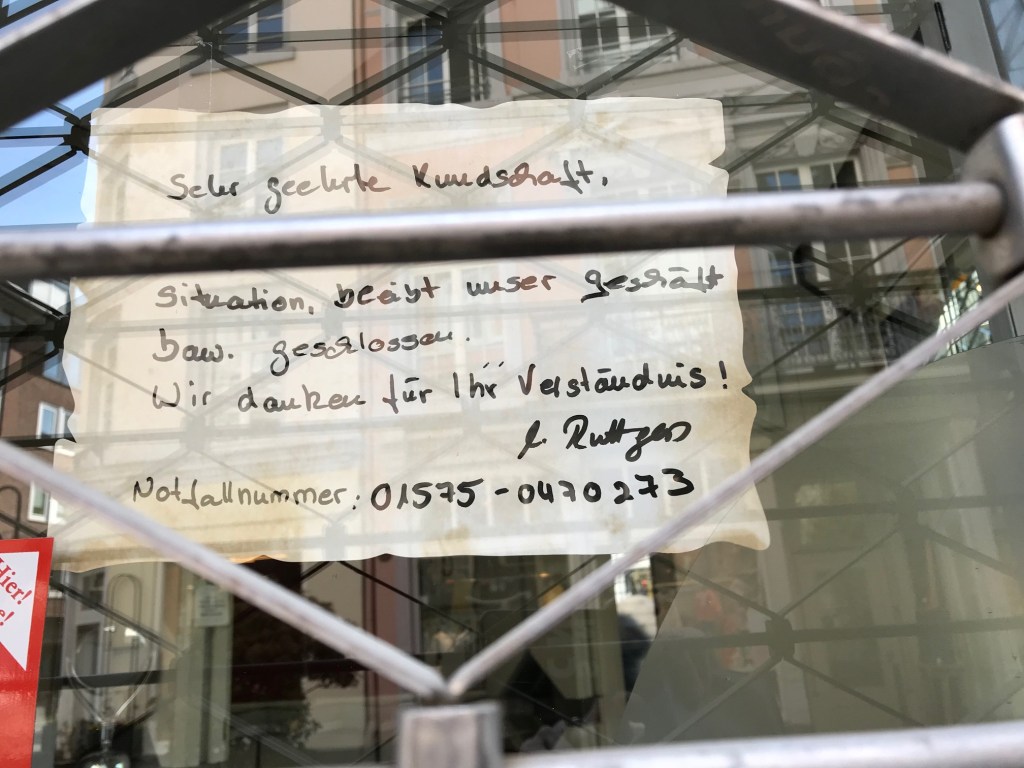 Sehr geehrte Kundschaft,
Situation, bleibt unser geschäft
baw. geschlossen.
Wir danken für Ihr Verständnis!
Notfallnummer: 01575-0470273
Hier!